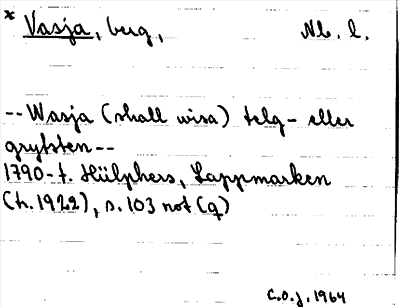 * Vasja, berg,
Nb. l.
-- Wasja (skall wisa) telg- eller
grytsten --
1790-t. Hülphers, Lappmarken
(tr. 1922), s. 103 not (q)
C.O.J. 1964